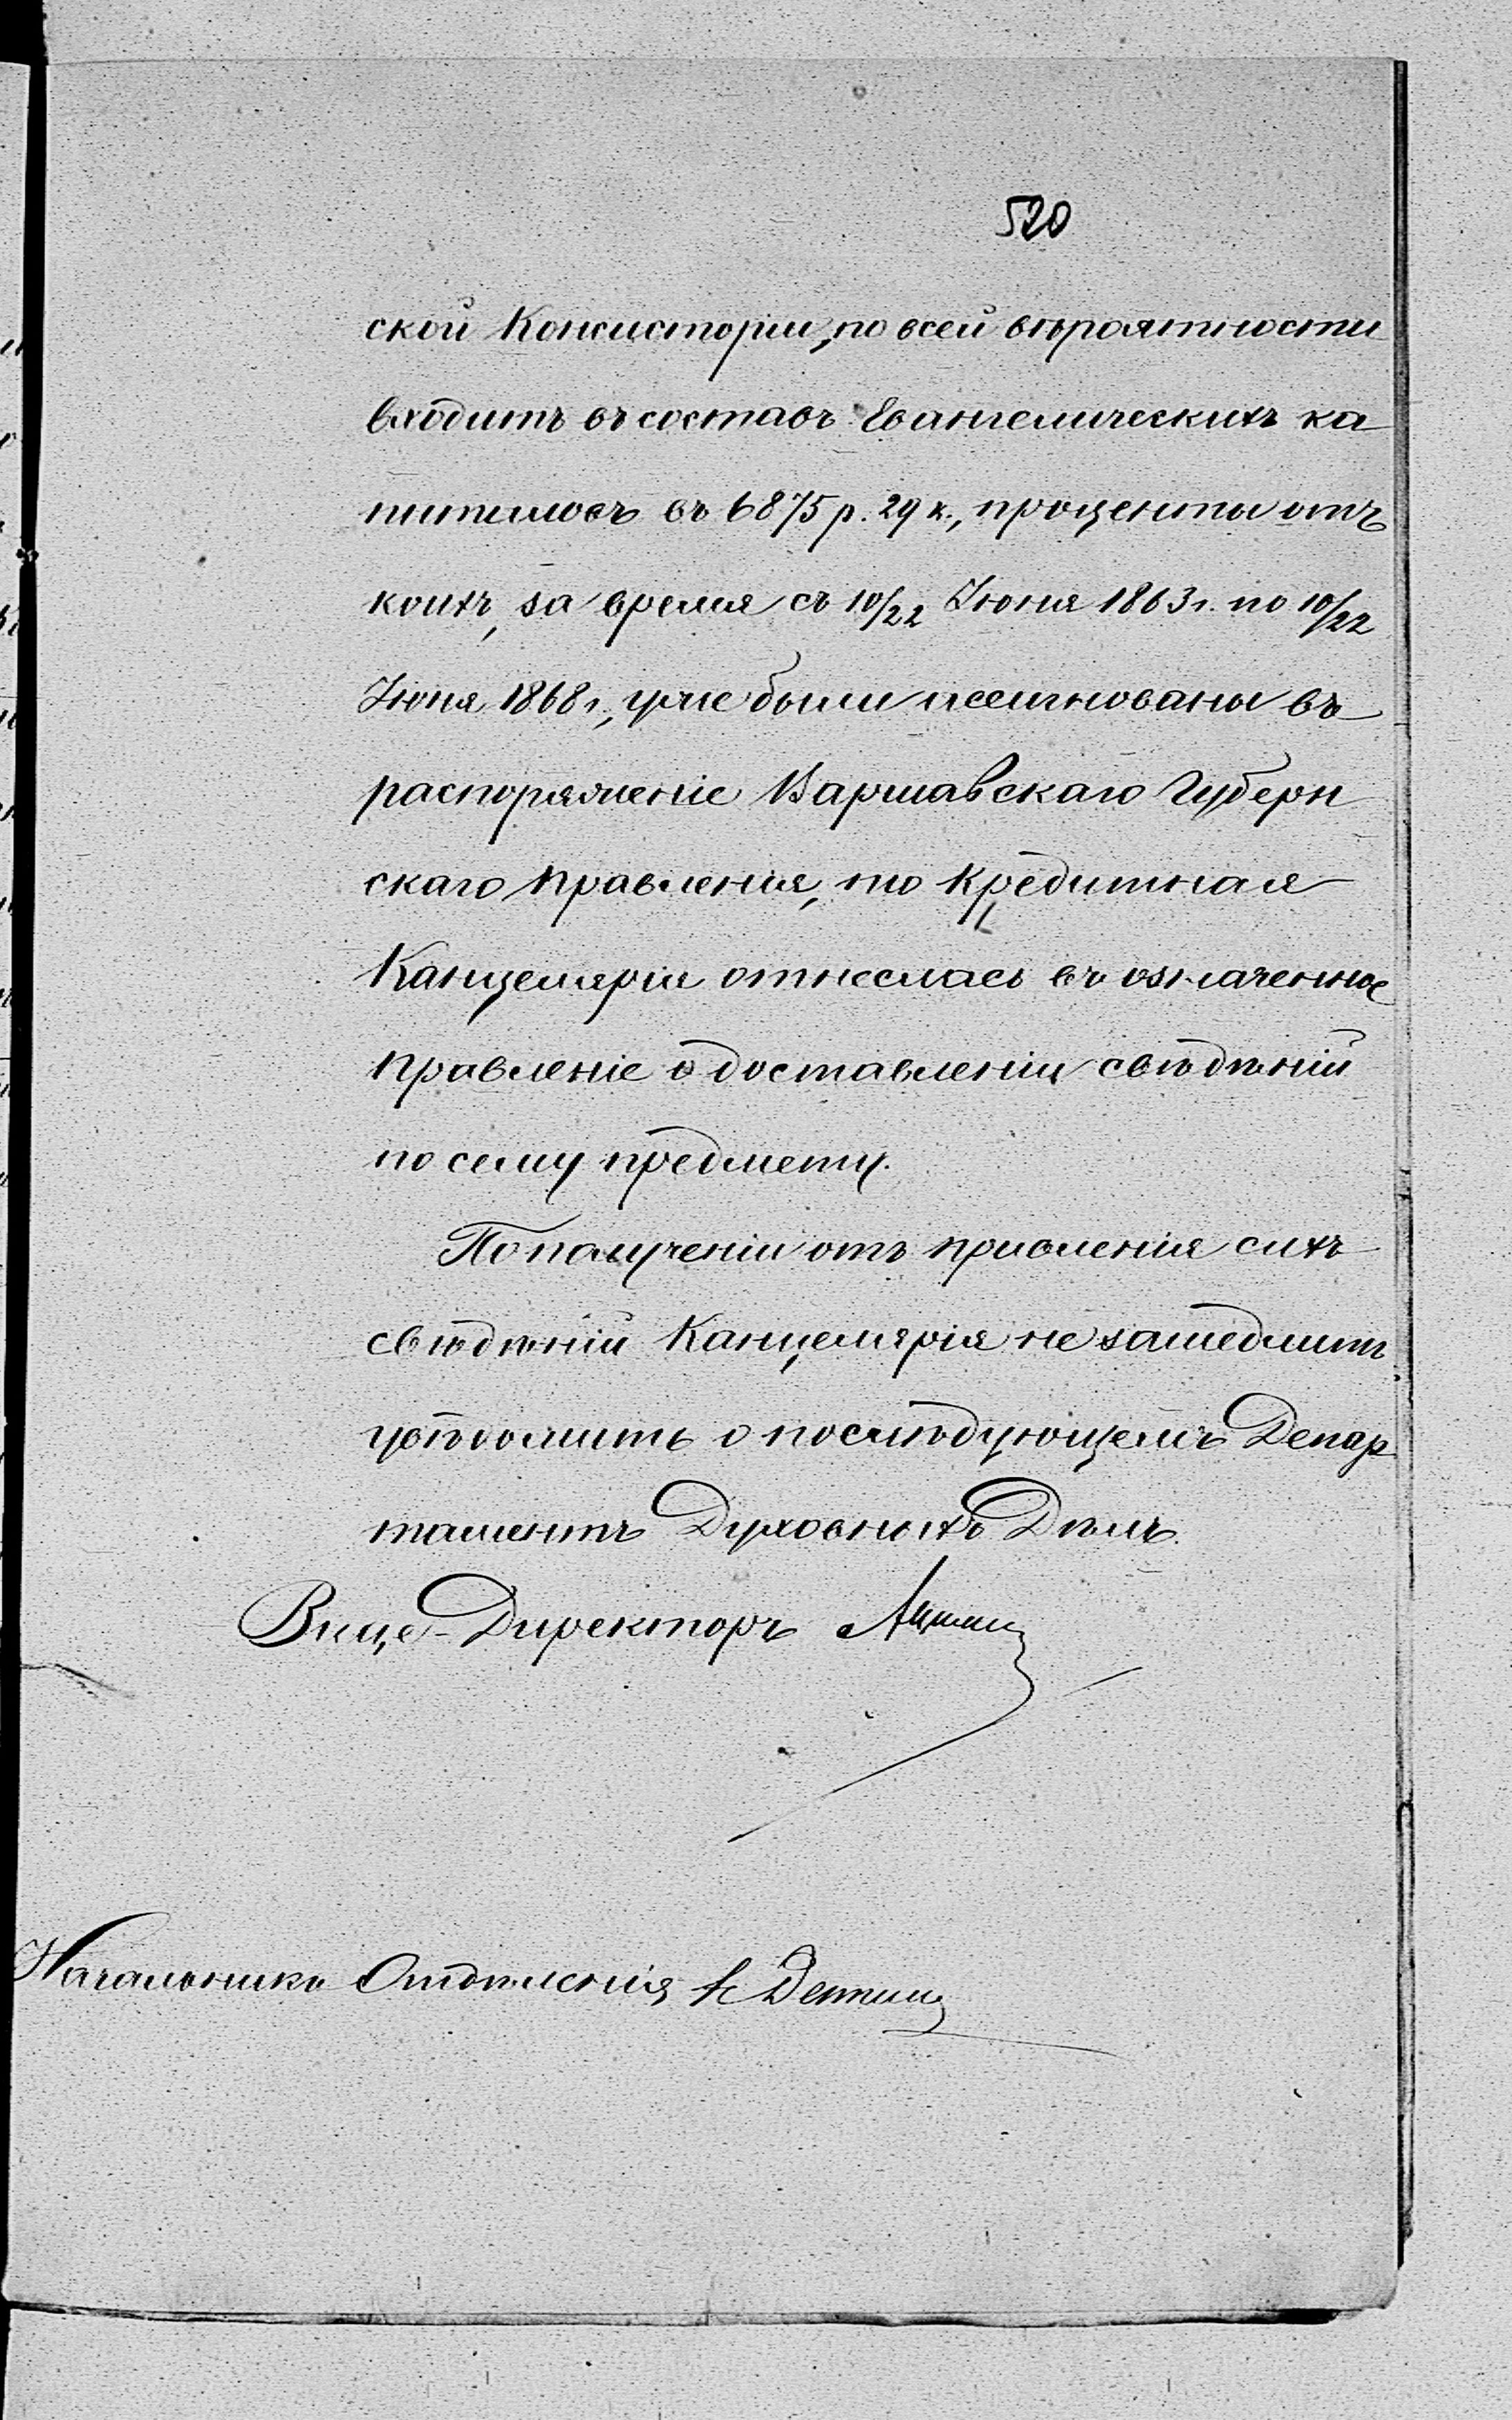 520
ской Консисторіи, по всей вѣроятности
входитъ въ составъ Евангелическихъ ка
питаловъ въ 6875 р. 29 к., проценты отъ
коихъ, за время съ 10/22 Іюня 1863 г. по 10/22
Іюня 1868 г., уже были ассигнованы въ
распоряженіе Варшавскаго Губерн
скаго Правленія, то Кредитная
Канцелярія отнеслась въ означенное
Правленіе о доставленіи свѣдѣній
по сему предмету.
По полученіи отъ Правленія сихъ
свѣдѣній Канцелярія не замедлитъ
увѣдомить о послѣдующемъ Депар
таментъ Духовныхъ Дѣлъ.
Вице-Директоръ
Начальникъ Отдѣленія